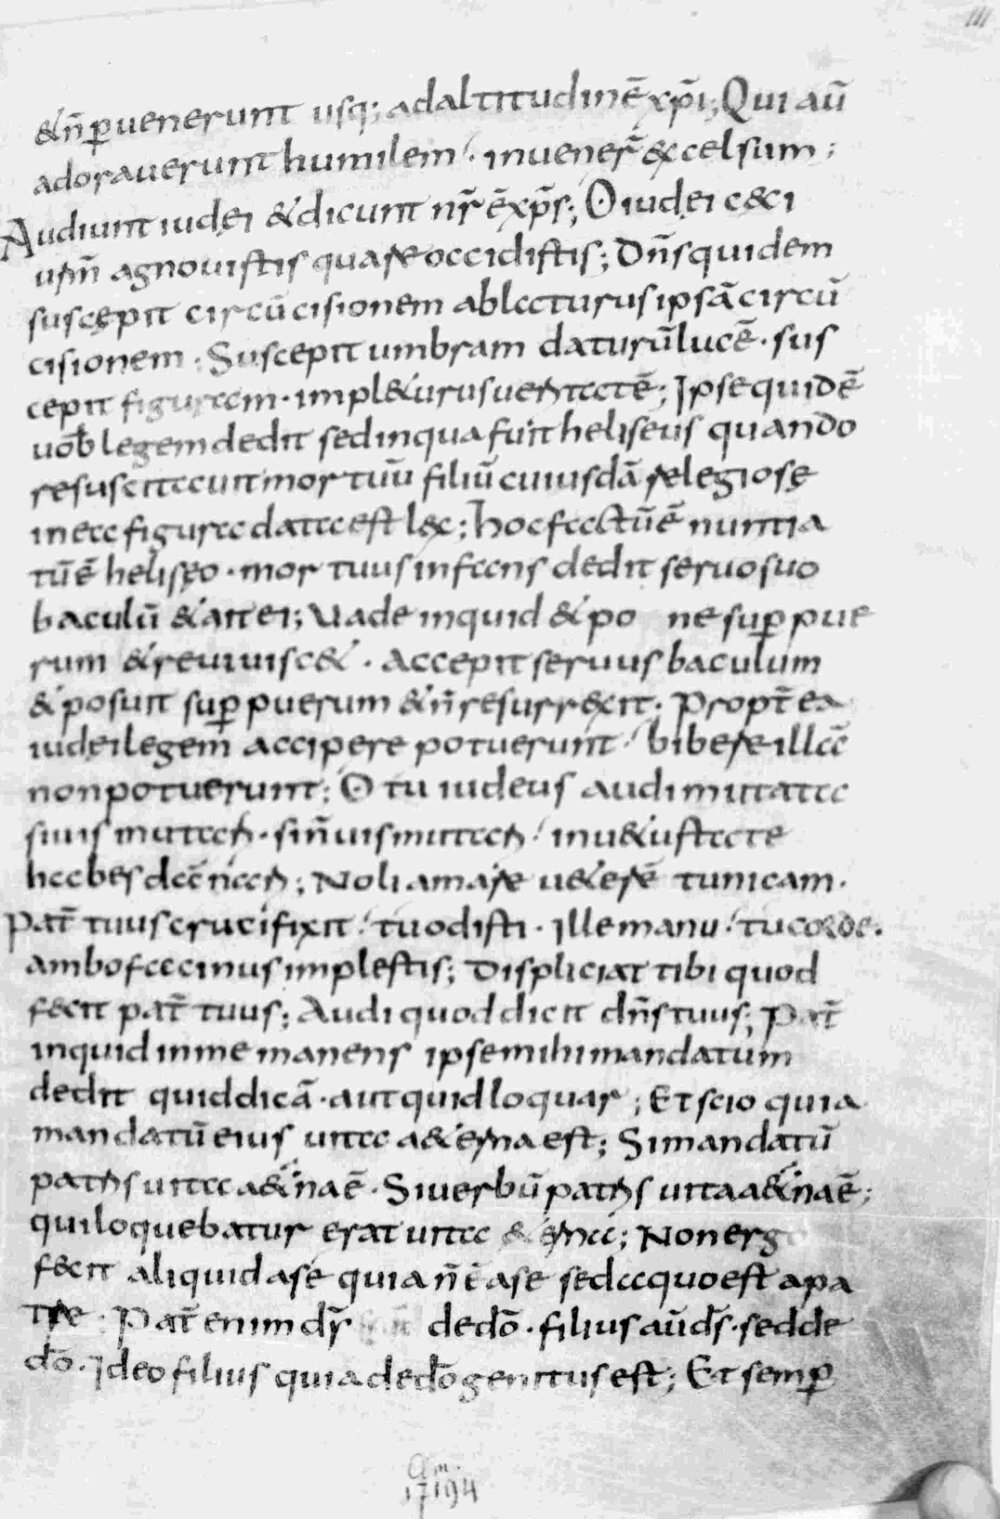 &n̄ ꝑuenerunt usq; ad altitudinē xp̄i; Qui aū
adorauerunt humilem. inuener̄ excelsum;
Audiunt iudęi & dicunt nr̄ ē xp̄s; O iudęi c&ci
uꝑm̄ agnouistis quare occidistis; Dn̄s quidem
suscępit circūcisionem ablaturus ipsā circū
cisionem; Suscepit umbram daturūlucē. sus
cepit figuram. impl&urus ueritatē; Ipse quidē
uob̄ legem dedit sed in qua fuit heliseus quando
resuscitauit mortuū filiū cuiusdā relegiosę
in ea figura data est lex; Hoc factū ē nuntia
tū ē helisęo. mortuus infans dedit seruo suo
baculū & ait ei; Uade inquid & po ne suꝑ pue
rum & reuiuisc&. Accepit seruus baculum
& posuit suꝑ puerum & n̄ resurrexit; Propt̄ ea
iudęi legem accipere potuerunt. bibere illā
non potuerunt; O tu iudeus audi mutata
si uis mutari. si n̄ uis mutari. in u&ustate
habes dān̄ari; Noli amare u&erē tunicam.
Pat̄ tuus crucifixit. tu odisti. ille manu. tu corde.
ambo facinus implestis; Displiciat tibi quod
fecit pat̄ tuus; Audi quod dicit dn̄s tuus; Pat̄
inquid in me manens ipse mihi mandatum
dedit quid dicā. aut quid loquar; Et scio quia
mandatū eius uita a&erna est; Si mandatū
patris uita a&rna ē. Si uerbū patris uita a&rna ē;
qui loquebatur erat uita &erna; Non ergo
fecit aliquid a se quia n̄ ē a se sed a quo est a pa
tre; Pat̄ enim ds̄ de dō. filius aū ds̄. sed de
dō. Ideo filius quia de dō genitus est; Et semꝑ
17194